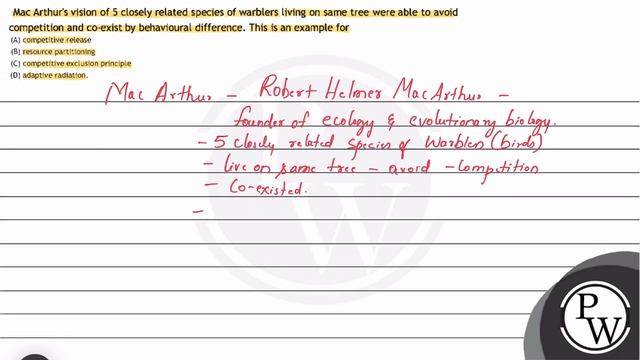 Mac Arthur's vision of 5 closely related species of warblers living on same tree were able to avoid
competition and co-exist by behavioural difference. This is an example for
(A) competitive release
(B) resource partitioning
(C) competitive exclusion principle
(D) adaptive radiation.
Mac Arthur - Robert Helmer MacArthur -
founder of ecology & evolutionary biology.
- 5 closely related species of Warblers (birds)
- live on same tree - avoid - competition
- Co-existed.
-
P
W